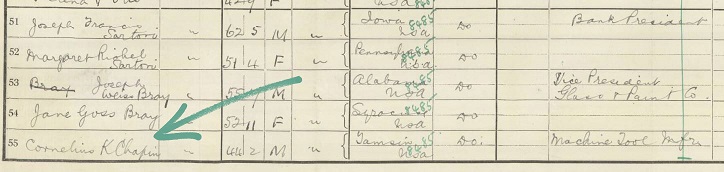 51 Joseph Francis Sartori " 62 5 M " Iowa USA 8485 Do Bank President
52 Margaret Rishel Sartori " 51 4 F " Pennsylvania USA 8485 Do
53 Bray Joseph Weiss Bray " M " Alabama USA 8485 Do Vice President Glass & Paint Co.
54 Jane Goss Bray 52 11 F " Syracuse USA 8485 Do
55 Cornelius K Chapin " 44 2 M " USA 8485 Do. Machine Tool Mfr